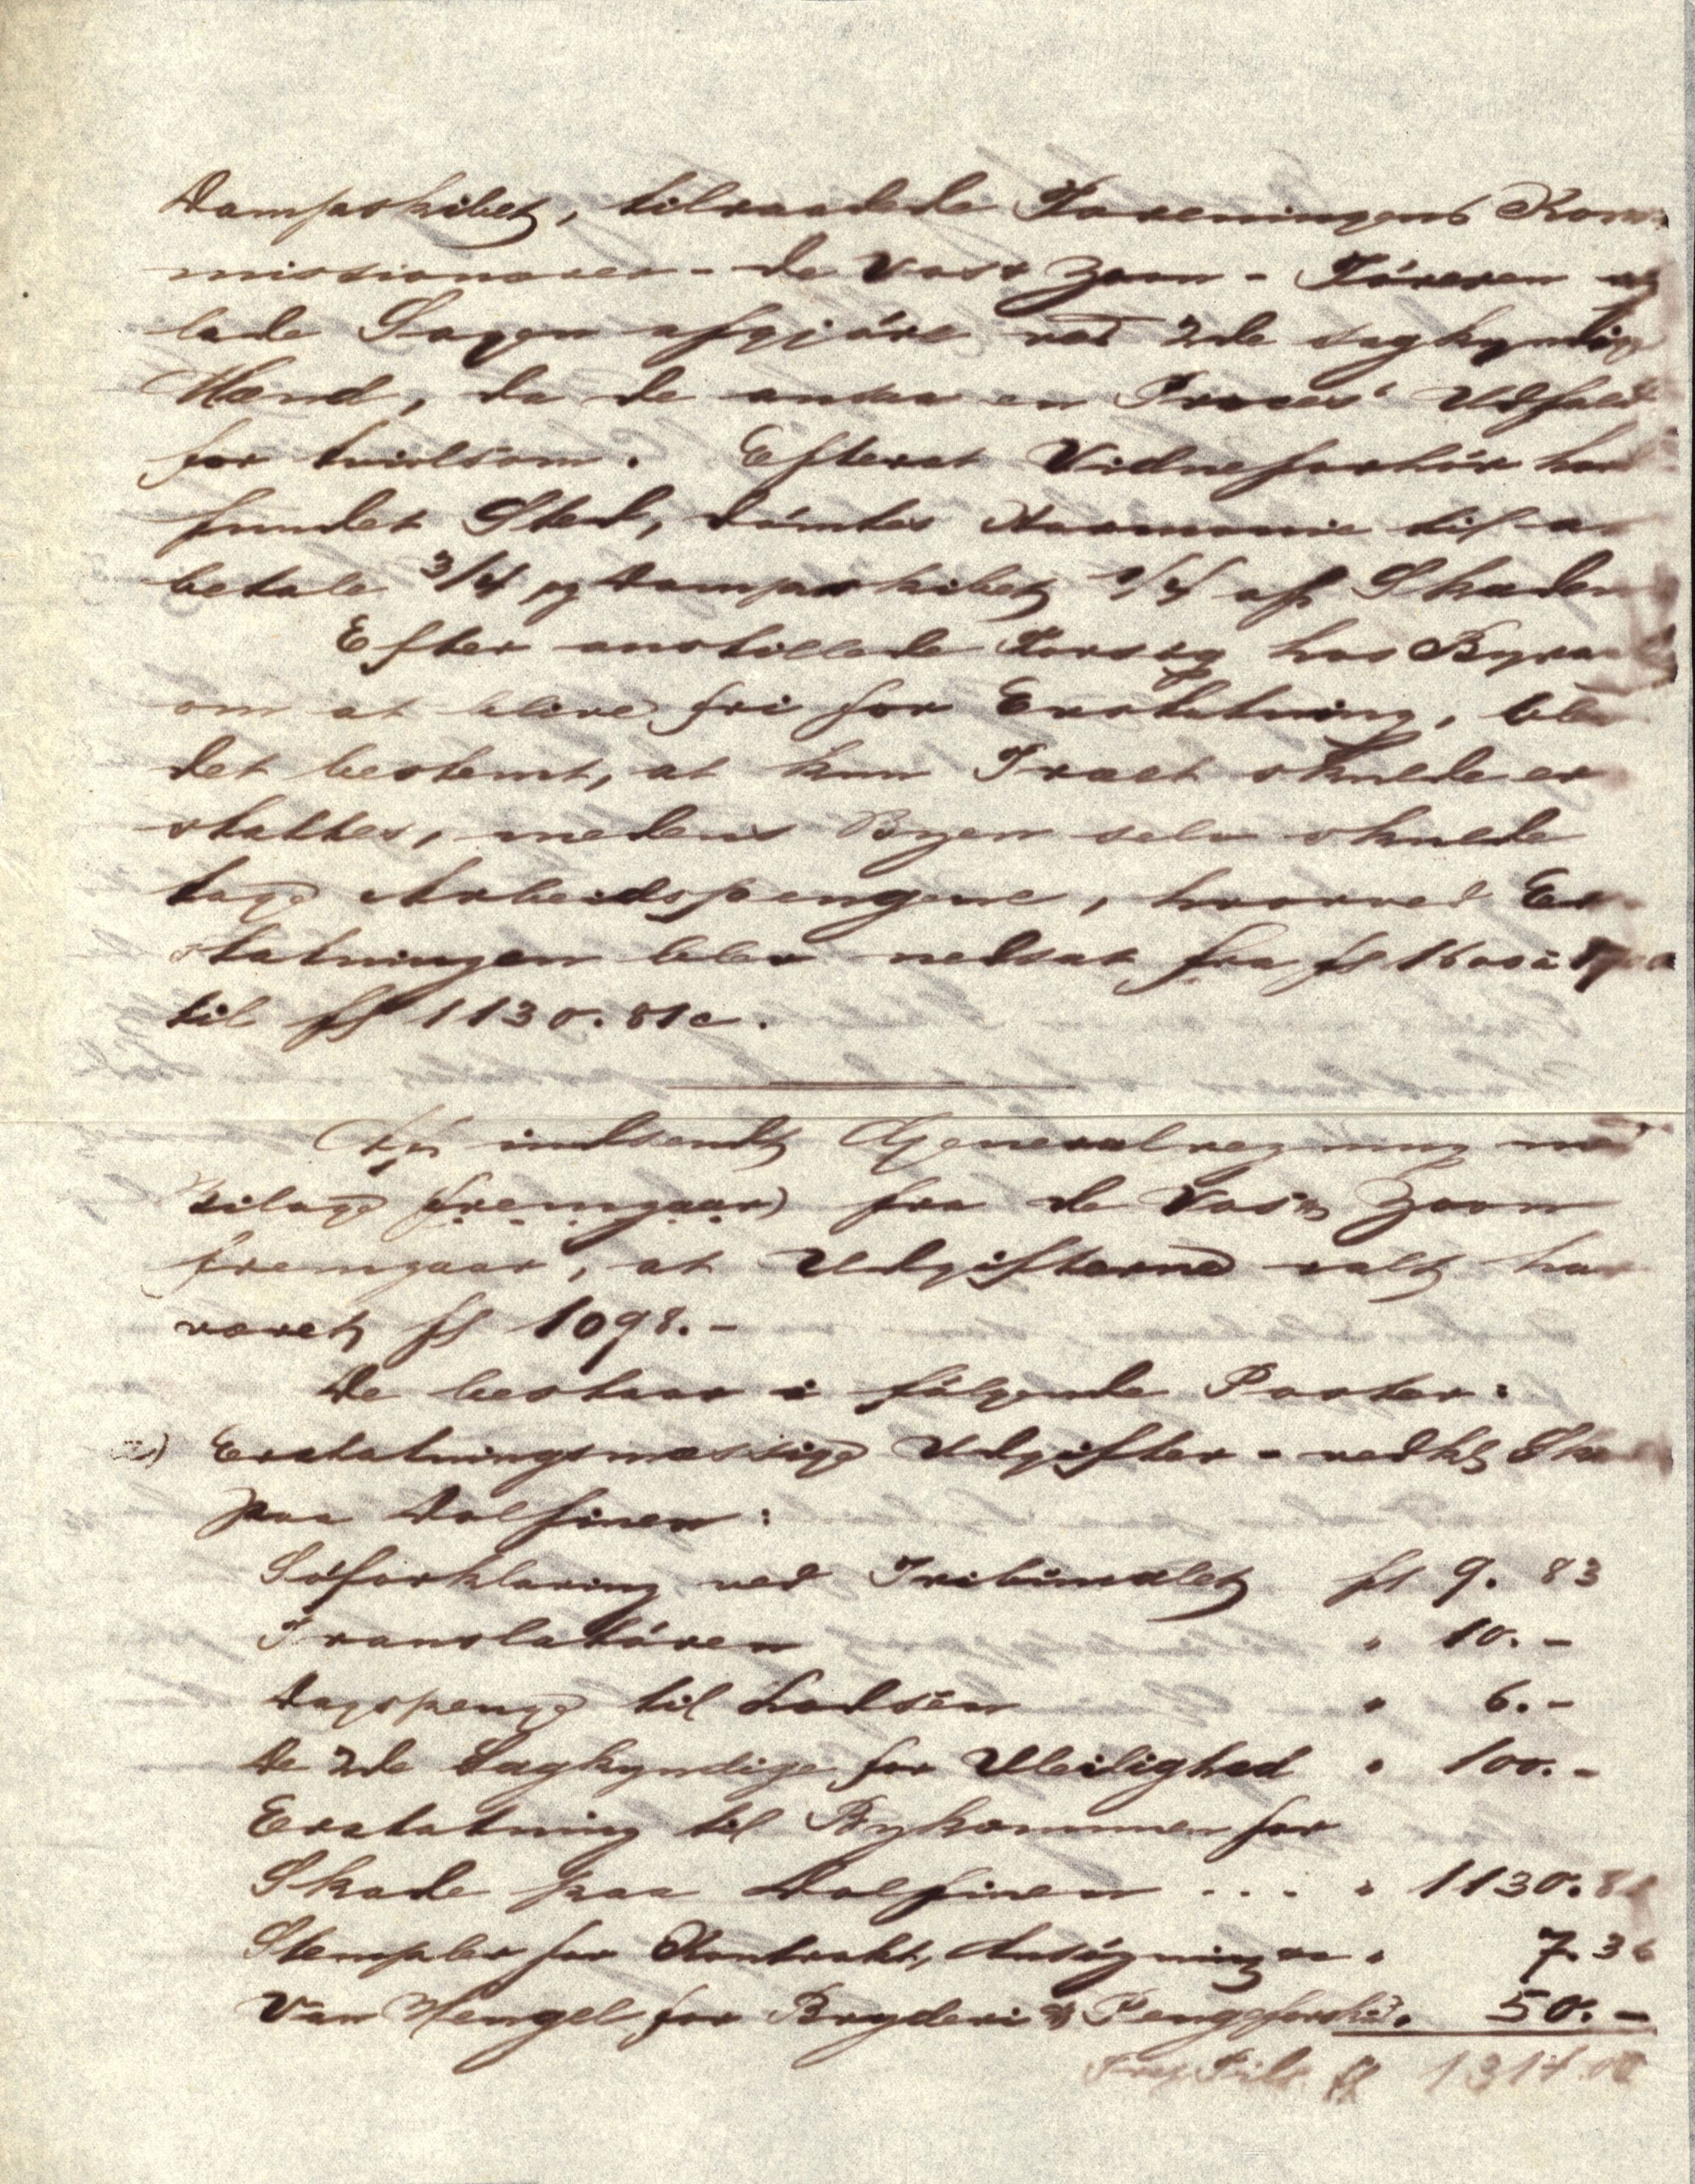 Dampskibet, tilraadede Foreningens Kom-
missionærer - de Vos & Zoon - Føreren at
lade Sagen afgjøre ved 2de sagkyndige
Mænd, da de ansaa en Proces' Udfald
for tvivlsom. Efterat Vidneforhør har
fundet Sted, dømtes Harmonie til at
betale 3/4 og Dampskibet 1/4 af Skaden
Efter anstillede Forsøg hos Byraad
om at blive fri for Erstatning, blev
det bestemt, at kun Træet skulde er
stattes, medens Byen selv skulde
tage Arbeidspengene, hvorved Er-
statningen blev nedsat fra fl 1600 à 1700
til fl 1130. 81c.
Af indsendt Generalregning med
Bilage fremgaar) fra de Vos & Zoon
fremgaar, at Udgifterne ialt har
været fl 1098.-
De bestaar i følgende Poster:
a) Erstatningsmæssige Udgifter - vedk Skade
paa Dolfinen:
Søforklaring ved Tribunalet fl 9. 83
Translatøren " 10.-
Dagspenge til Lodsen " 6.-
De 2de Sagkyndige for Uleilighed " 100.-
Erstatning til Bykommunen for
Skade paa Dolfinen ... " 1130. 81
Stempler for Kontrakt, Ansøgning " 7.36
Van Hengel for Bryderi & Pengeforskd. " 50.-
fl 1314.00